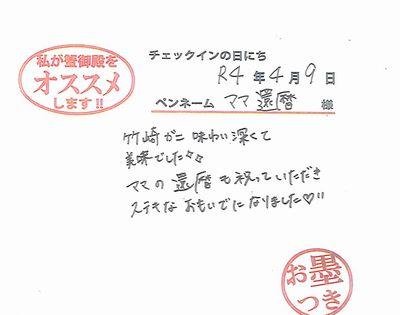 私が蟹御殿を
オススメ
します!!
チェックインの日にち
R4 年 4 月 9 日
ペンネーム ママ還暦 様
竹崎ガニ味わい深くて
美味でした
ママの還暦も祝っていただき
ステキなおもいでになりました♡!!
お墨
つき